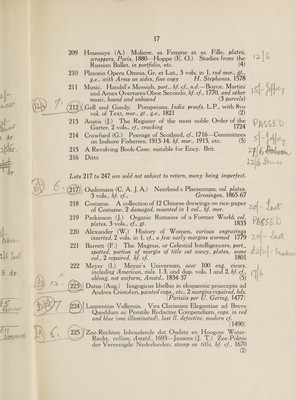 17
209 Houssaye (A.) Moliere, sa Femme et sa Fille, plates,
wrappers, Paris, 1880—Hoppe (E. O.) Studies from the
Russian Ballet, in portfolio, etc. (4)
210 Platonis Opera Omnia, Gr. et Lat., 3 vols. in 1, red mor., gt.,
g.e., with Arms on sides, fine copy H. Stephanus, 1578
211 Music. Handel's Messiah, port., hf. cf., n.d.—Boyce, Martini
and Arnes Overtures Oboe Secondo, hf. cf., 1770, and other
music, bound and unbound (3 parcels)
212 Gell and Gandy. Pompeiana, India proofs, L.P., with 8vo
vol. of Text, mor., gt., g.e., 1821 (2)
213 Anstis (J.) The Register of the most noble Order of the
Garter, 2 vols., cf., cracking 1724
214 Crawfurd (G.) Peerage of Scotland, cf., 1716—Committees
on Inshore Fisheries, 1913-14, hf. mor., 1913, etc. (5)
215 A Revolving Book-Case, suitable for Ency. Brit.
216 Ditto
Lots 217 to 247 are sold not subject to return, many being imperfect.
217 Oudemans (C. A. J. A.) Neerland's Plantenrom, col. plates,
3 vols., hf. cf., Groningen, 1865.67
218 Costume. A collection of 12 Chinese drawings on rice-paper
of Costume, 2 damaged, mounted in 1 vol., hf. mor.
219 Parkinson (J.) Organic Remains of a Former World, col.
plates, 3 vols., cf., gt. 1833
220 Alexander (W.) History of Women, various engravings
inserted, 2 vols. in 1, cf., a few early margins wormed 1779
221 Barrett (F.) The Magnus, or Celestial Intelligencer, port.,
spotted, portion of margin of title cut away, plates, some
col., 2 repaired, hf. cf. 1801
222 Meyer (J.) Meyer's Universum, over 100 eng. views,
including American, vols. 1-3, and dup. vols. 1 and 2, hf. cf.,
oblong, not uniform, Amstd., 1834-37 (5)
223 Datus (Aug.) Isagogicus libellus in eloquentiae praecepta ad
Andrea Cristoferi, painted caps., etc., 2 margins repaired, bds.
Parisiis per U. Gering, 1477
224 Laurentius Vallensis. Vira Clarissimi Elegantiae ad Breve
Quoddam ac Perutile Redactae Compendium, caps. in red
and blue (one illuminated), last ll. defective, modern cf.
(1490)
225 Zee-Rechten Inhoudende dat Oudste en Hoogste Water-
Recht, vellum, Amstd., 1693—Janssen (J. T.) Zee-Politie
der Vereenigde Nederlanden, stamp on title, hf. cf., 1670
(2)
PASSED
PASSED